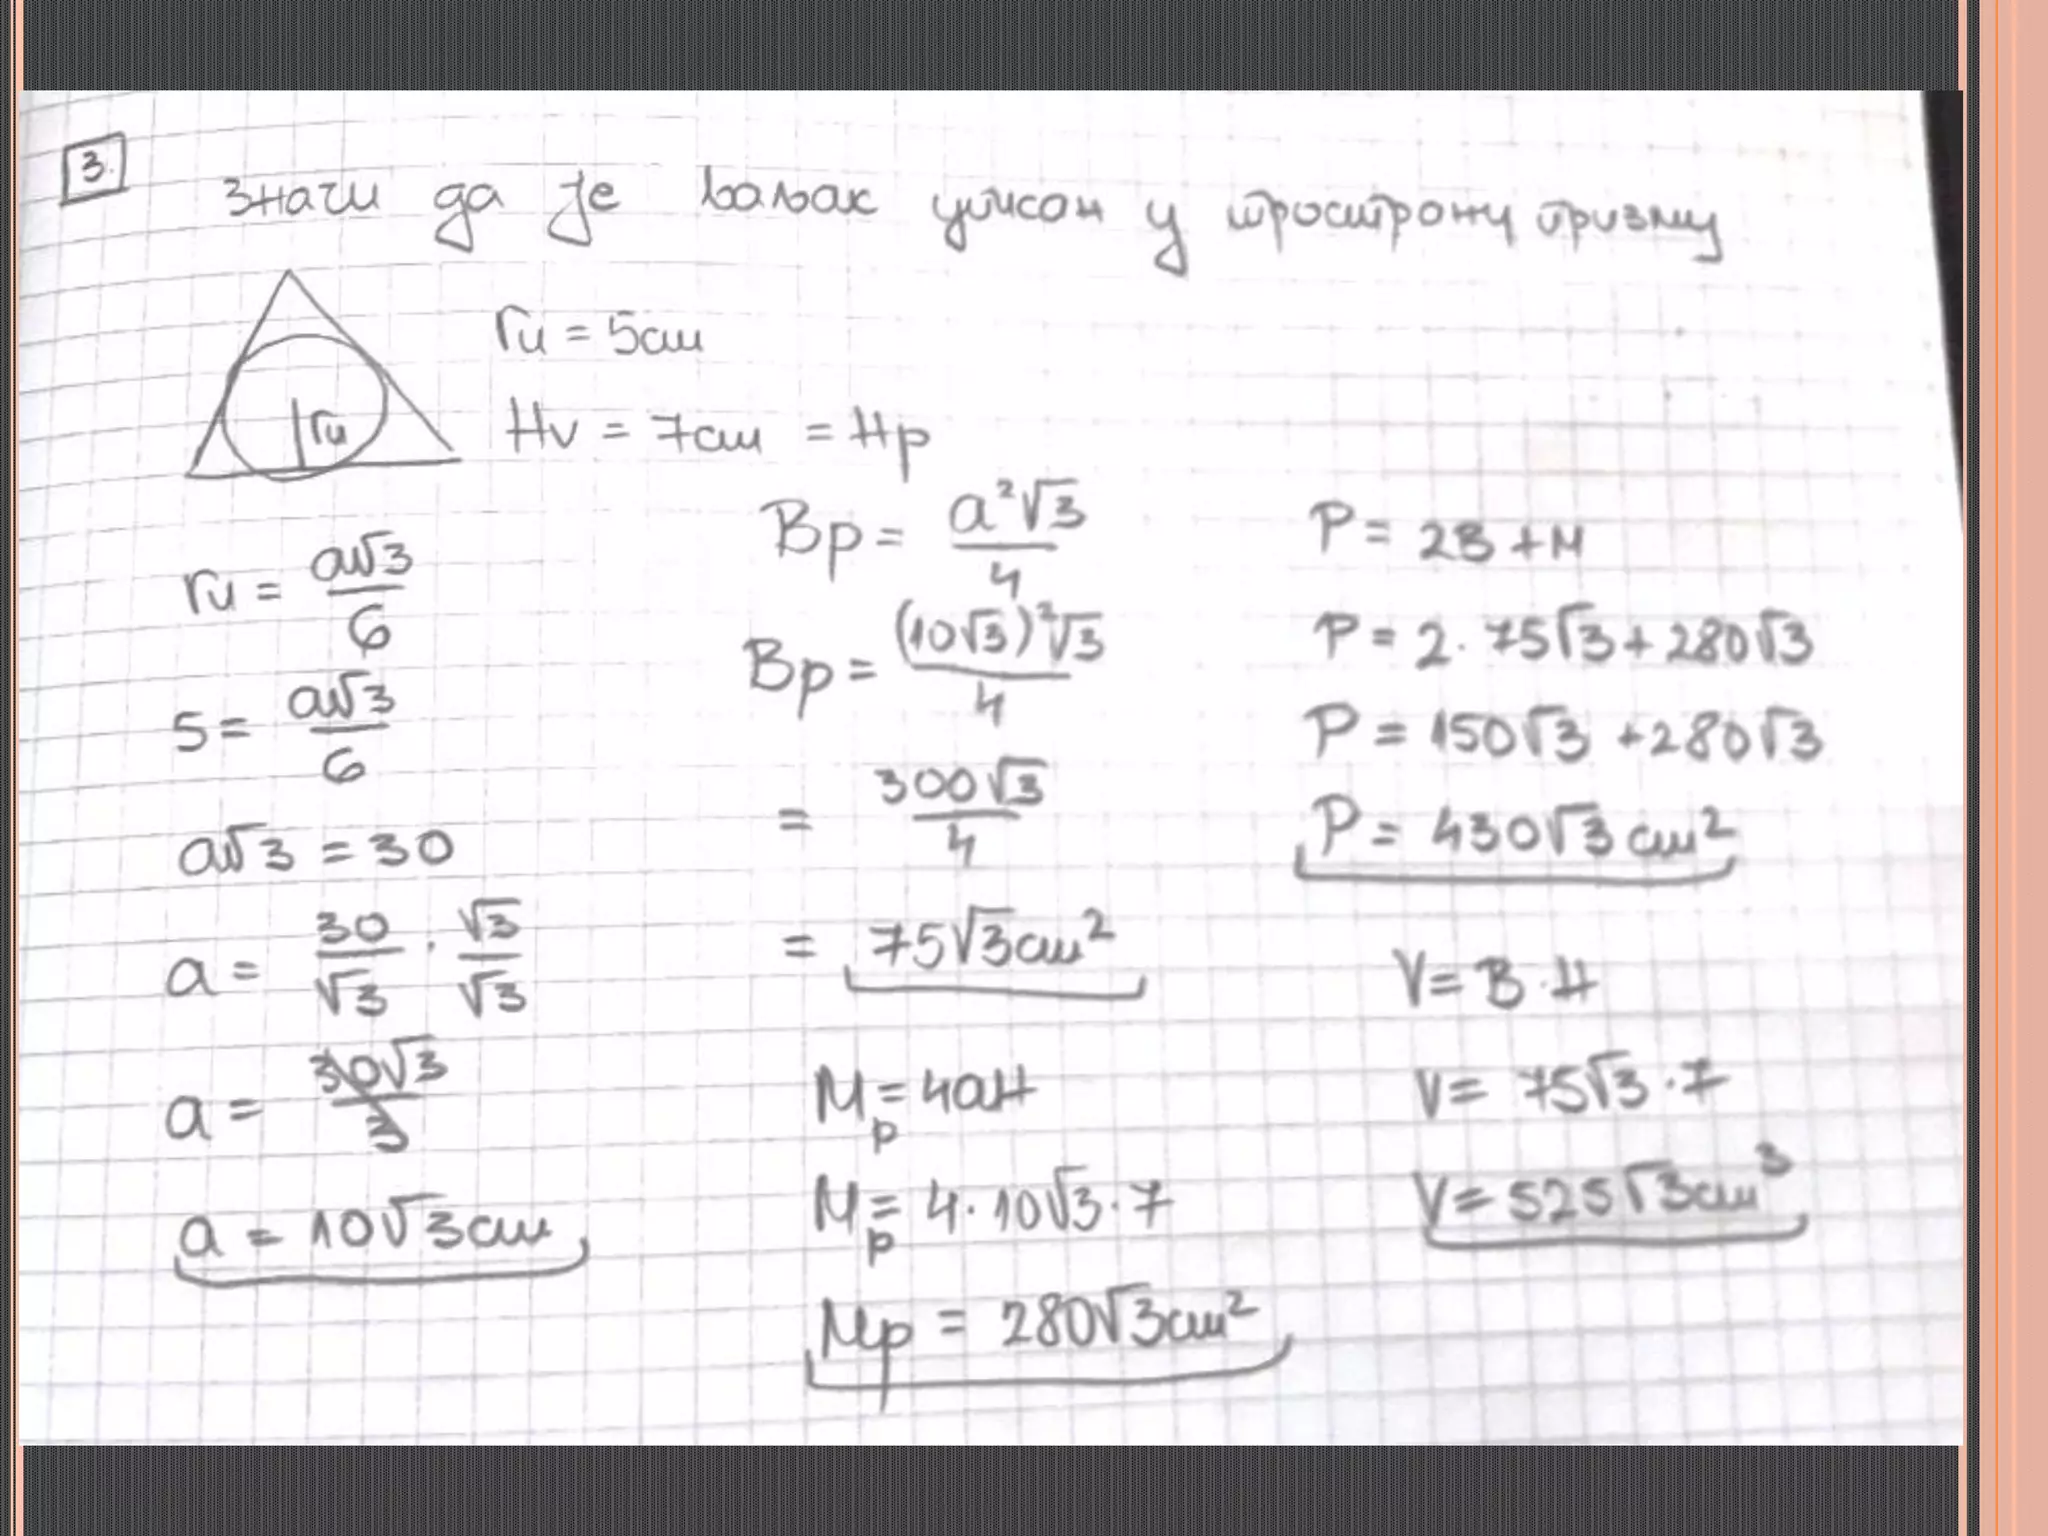 3.
значи да је ваљак уписан у тространу призму
rи
rи = 5cm
Hv = 7cm = Hp
rи = a√3/6
5 = a√3/6
a√3 = 30
a = 30/√3 · √3/√3
a = 30√3/3
a = 10√3cm
Bp = a²√3/4
Bp = (10√3)²√3/4
= 300√3/4
= 75√3cm²
Mp = 4aH
Mp = 4·10√3·7
Mp = 280√3cm²
P = 2B + M
P = 2·75√3 + 280√3
P = 150√3 + 280√3
P = 430√3cm²
V = B·H
V = 75√3·7
V = 525√3cm³